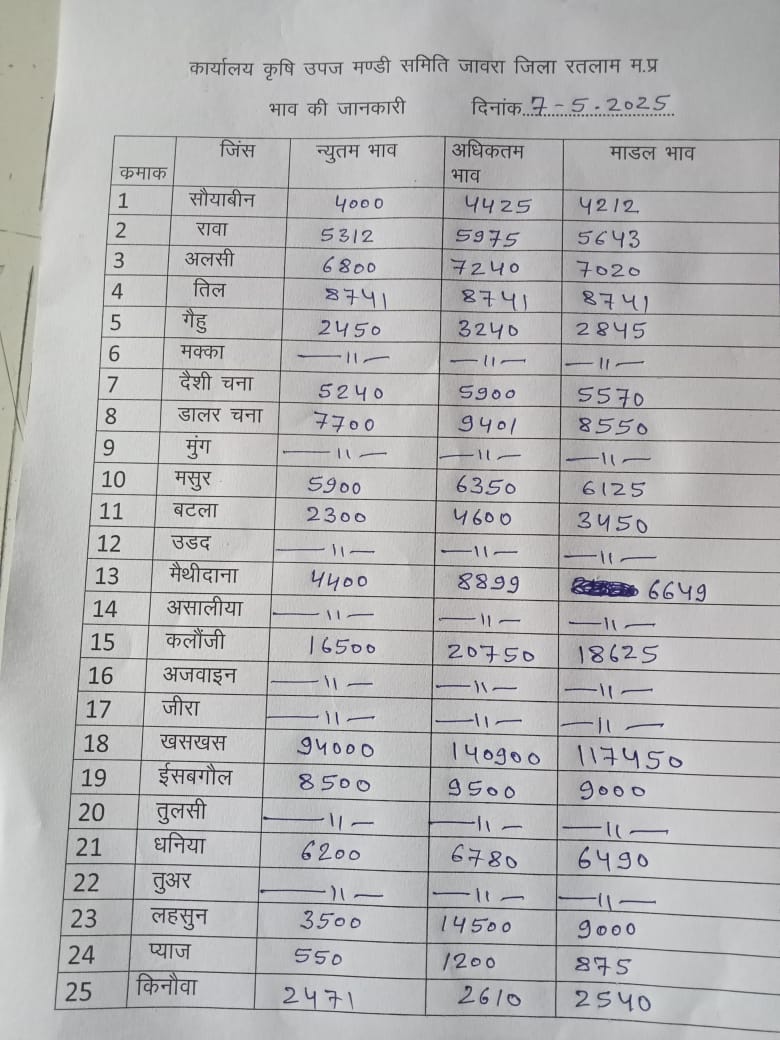 कार्यालय कृषि उपज मण्डी समिति जावरा जिला रतलाम म.प्र
भाव की जानकारी दिनांक 7-5.2025
कमाक जिंस न्युतम भाव अधिकतम भाव माडल भाव
1 सौयाबीन 4000 4425 4212
2 रावा 5312 5975 5643
3 अलसी 6800 7240 7020
4 तिल 8741 8741 8741
5 गैहु 2450 3240 2845
6 मक्का —11— —11— —11—
7 दैशी चना 5240 5900 5570
8 डालर चना 7700 9401 8550
9 मुंग —11— —11— —11—
10 मसुर 5900 6350 6125
11 बटला 2300 4600 3450
12 उडद —11— —11— —11—
13 मैथीदाना 4400 8899 6649
14 असालीया —11— —11— —11—
15 कलौंजी 16500 20750 18625
16 अजवाइन —11— —11— —11—
17 जीरा —11— —11— —11—
18 खसखस 94000 140900 117450
19 ईसबगौल 8500 9500 9000
20 तुलसी —11— —11— —11—
21 धनिया 6200 6780 6490
22 तुअर —11— —11— —11—
23 लहसुन 3500 14500 9000
24 प्याज 550 1200 875
25 किनौवा 2471 2610 2540